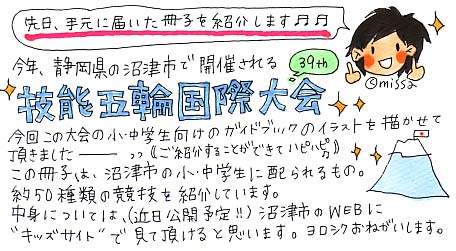 先日、手元に届いた冊子を紹介します♬♬
@missa
今年、静岡県の沼津市で開催される
39th
技能五輪国際大会
今回この大会の小・中学生向けのガイドブックのイラストを描かせて
頂きました―― 》《ご紹介することができてハピハピ》
この冊子は、沼津市の小・中学生に配られるもの。
約50種類の競技を紹介しています。
中身については、(近日公開予定!!)沼津市のWEBに
"キッズサイト"で見て頂けると思います。ヨロシクおねがいします。